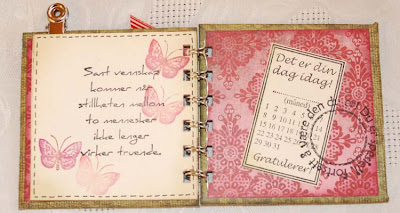 Sant vennskap
kommer når
stillheten mellom
to mennesker
ikke lenger
virker truende
Det er din
dag idag!
(måned)
1 2 3 4
8 9 10 11
15 16 17 18 19
22 23 24 25 26
29 30 31
Gratulerer!
den du er. Du